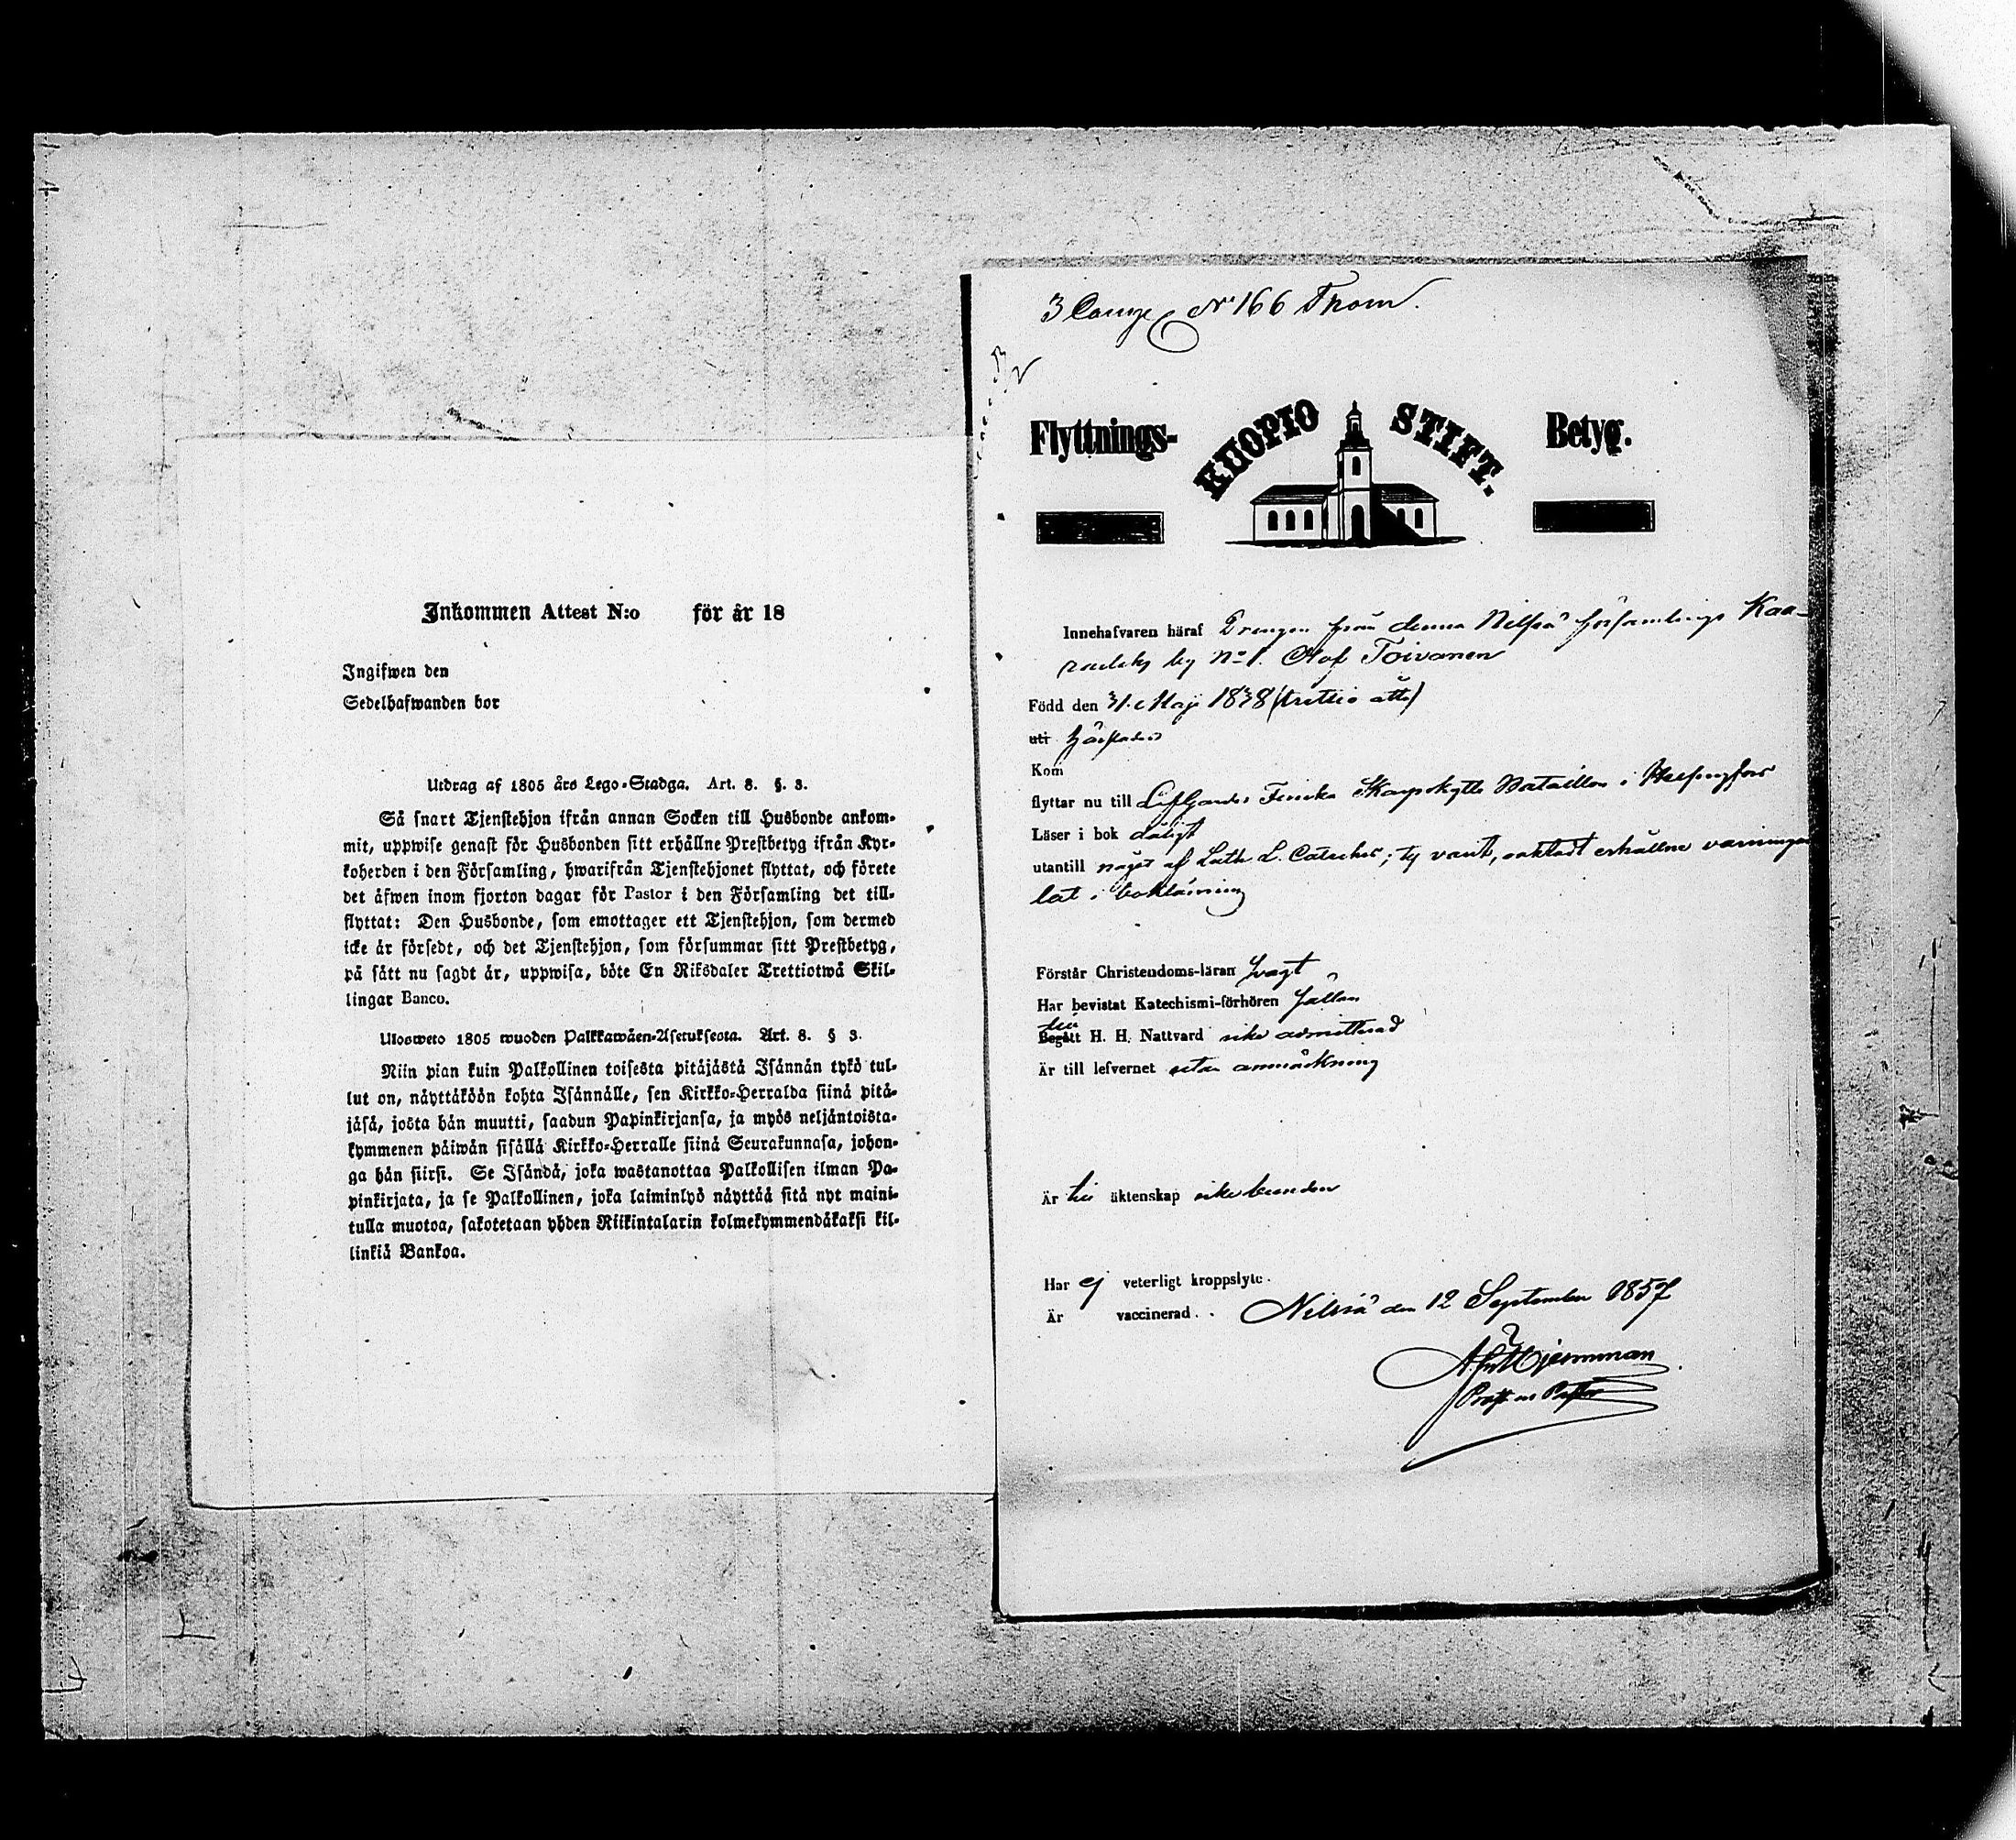 Inkommen Attest N:o för år 18
Ingifwen den
Sedelhafwanden bor
Utdrag af 1805 års Lego-Stadga. Art. 8. §. 3.
Så snart Tjenstehjon ifrån annan Socken till Husbonde ankom-
mit, uppwise genast för Husbonden sitt erhållne Prestbetyg ifrån Kyr-
koherden i den Församling, hwarifrån Tjenstehjonet flyttat, och förete
det äfwen inom fjorton dagar för Pastor i den Församling det till-
flyttat: Den Husbonde, som emottager ett Tjenstehjon, som dermed
icke är försedt, och det Tjenstehjon, som försummar sitt Prestbetyg,
på sätt nu sagdt är, uppwisa, böte En Riksdaler Trettiotwå Skil-
lingar Banco.
Ulosweto 1805 wuoden Palkkawäen-Asetuksesta. Art. 8. § 3.
Niin pian kuin Palkollinen toisesta pitäjästä Isännän tykö tul-
lut on, näyttäköön kohta Isännälle, sen Kirkko-Herralda siinä pitä-
jäsä, josta hän muutti, saadun Papinkirjansa, ja myös neljäntoista-
kymmenen päiwän sisällä Kirkko-Herralle siinä Seurakunnasa, johon-
ga hän siirsi. Se Isändä, joka wastanottaa Palkollisen ilman Pa-
pinkirjata, ja se Palkollinen, joka laiminlyö näyttää sitä nyt maini-
tulla muotoa, sakotetaan yhden Riikintalarin kolmekymmendäkaksi kil-
linkiä Bankoa.
3 Comp. N° 166 Thom.
Flyttnings- KUOPIO STIFT. Betyg.
Innehafvaren häraf Drengen från denna Nilsiä församlings Kaa-
by N° 1. Olof Toivanen
Född den 31. Maji 1838 (trettio åtta)
uti härstädes
Kom
flyttar nu till Lifgardes Finska Skarpskytte Bataillon i Helsingfors
Läser i bok dåligt
utantill något af Luth. L. Cateches; ty varit, oaktadt erhållne varningar
lat i bokläsning
Förstår Christendoms-läran svagt
Har bevistat Katechismi-förhören sällan
till
Begått H. H. Nattvard icke admitterad
Är till lefvernet utan anmärkning
Är till äktenskap icke bunden
Har ej veterligt kroppslyte.
Är vaccinerad. Nilsiä den 12 September 1857